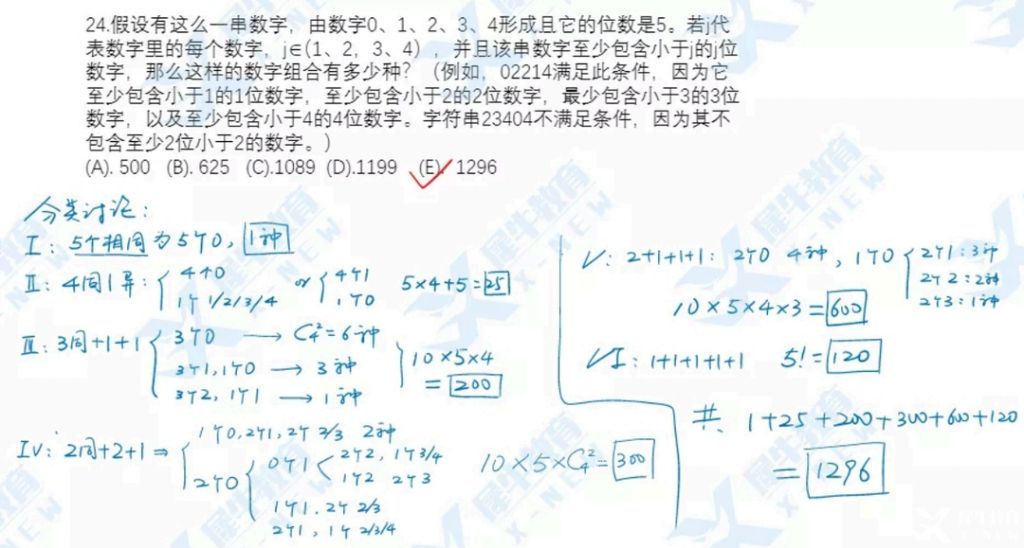 24.假设有这么一串数字，由数字0、1、2、3、4形成且它的位数是5。若j代
表数字里的每个数字，j∈(1、2，3、4），并且该串数字至少包含小于j的j位
数字，那么这样的数字组合有多少种？（例如，02214满足此条件，因为它
至少包含小于1的1位数字，至少包含小于2的2位数字，最少包含小于3的3位
数字，以及至少包含小于4的4位数字。字符串23404不满足条件，因为其不
包含至少2位小于2的数字。）
(A). 500 (B). 625 (C).1089 (D).1199 (E). 1296
分类讨论：
I：5个相同为5个0，1种
II：4同1异：{ 4个0 or { 4个1 5×4+5=25
1个 1/2/3/4 1个0
III：3同+1+1 { 3个0 → C₄²=6种
3个1,1个0 → 3种 } 10×5×4
3个2,1个1 → 1种 =200
IV：2同+2+1 ⇒ { 1个0,2个1,2个 2/3 2种
2个0 { 0个1 < 2个2, 1个3/4
1个2 2个3
1个1.2个 2/3
2个1,1个 2/3/4
10×5×C₄²=300
V：2+1+1+1：2个0 4种，1个0 { 2个1：3种
2个2：2种
2个3：1种
10×5×4×3=600
VI：1+1+1+1+1 5!=120
共 1+25+200+300+600+120
=1296
犀牛教育
X-NEW